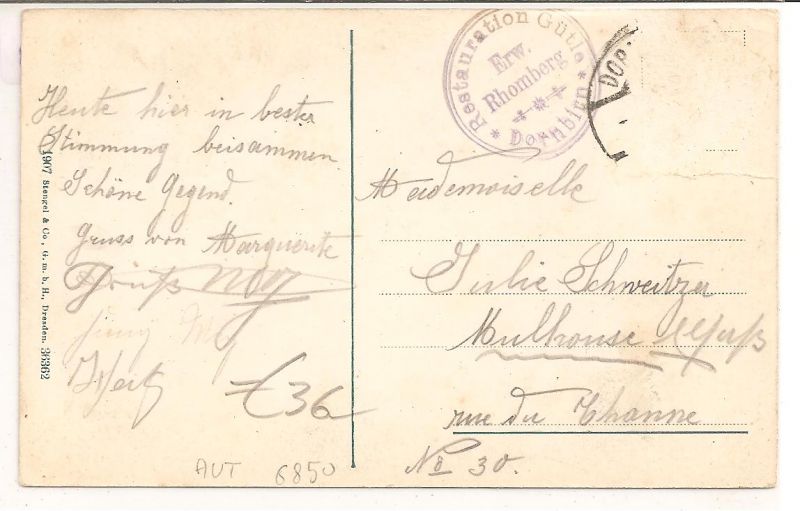 Heute hier in bester
Stimmung beisammen
Schöne Gegend.
Gruss von Marguerite
Gruß
1907 Stengel & Co., G. m. b. H., Dresden. 36362
£36
AUT 6850
Restauration Gütle
Erw.
Rhomberg
* Dornbirn *
DOR
Mademoiselle
Julie Schweitzer
Mulhouse Elsaß
rue du Thanne
No 30.